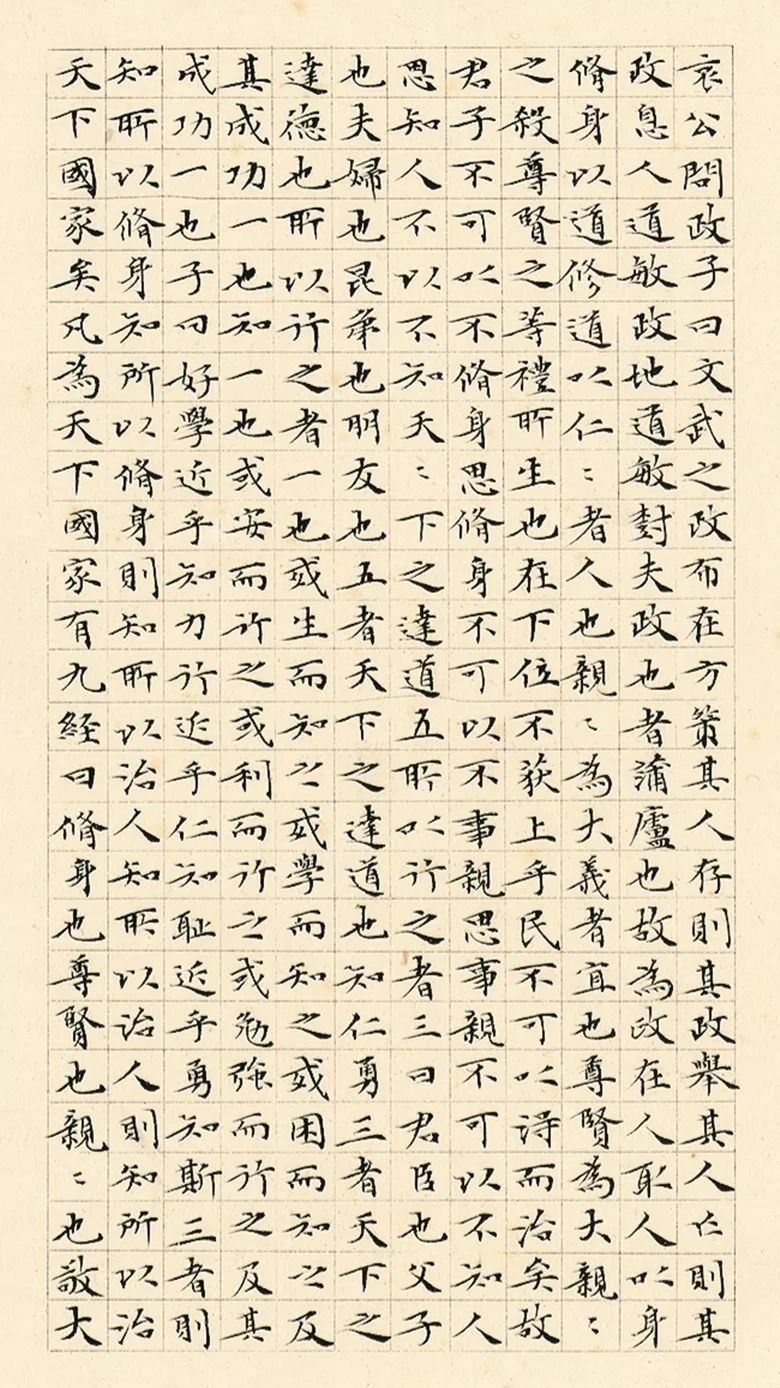 哀公問政子曰文武之政布在方策其人存則其政舉其人亡則其
政息人道敏政地道敏尌夫政也者蒲廬也故為政在人取人以身
脩身以道修道以仁〻者人也親〻為大義者宜也尊賢為大親〻
之殺尊賢之等禮所生也在下位不获上乎民不可以得而治矣故
君子不可以不脩身思脩身不可以不事親思事親不可以不知人
思知人不以不知天〻下之達道五所以行之者三曰君臣也父子
也夫婦也昆弟也朋友也五者天下之達道也知仁勇三者天下之
達德也所以行之者一也或生而知之或學而知之或困而知之及
其成功一也知一也或安而行之或利而行之或勉強而行之及其
成功一也子曰好學近乎知力行近乎仁知耻近乎勇知斯三者則
知所以脩身知所以脩身則知所以治人知所以治人則知所以治
天下國家矣凡為天下國家有九経曰脩身也尊賢也親〻也敬大